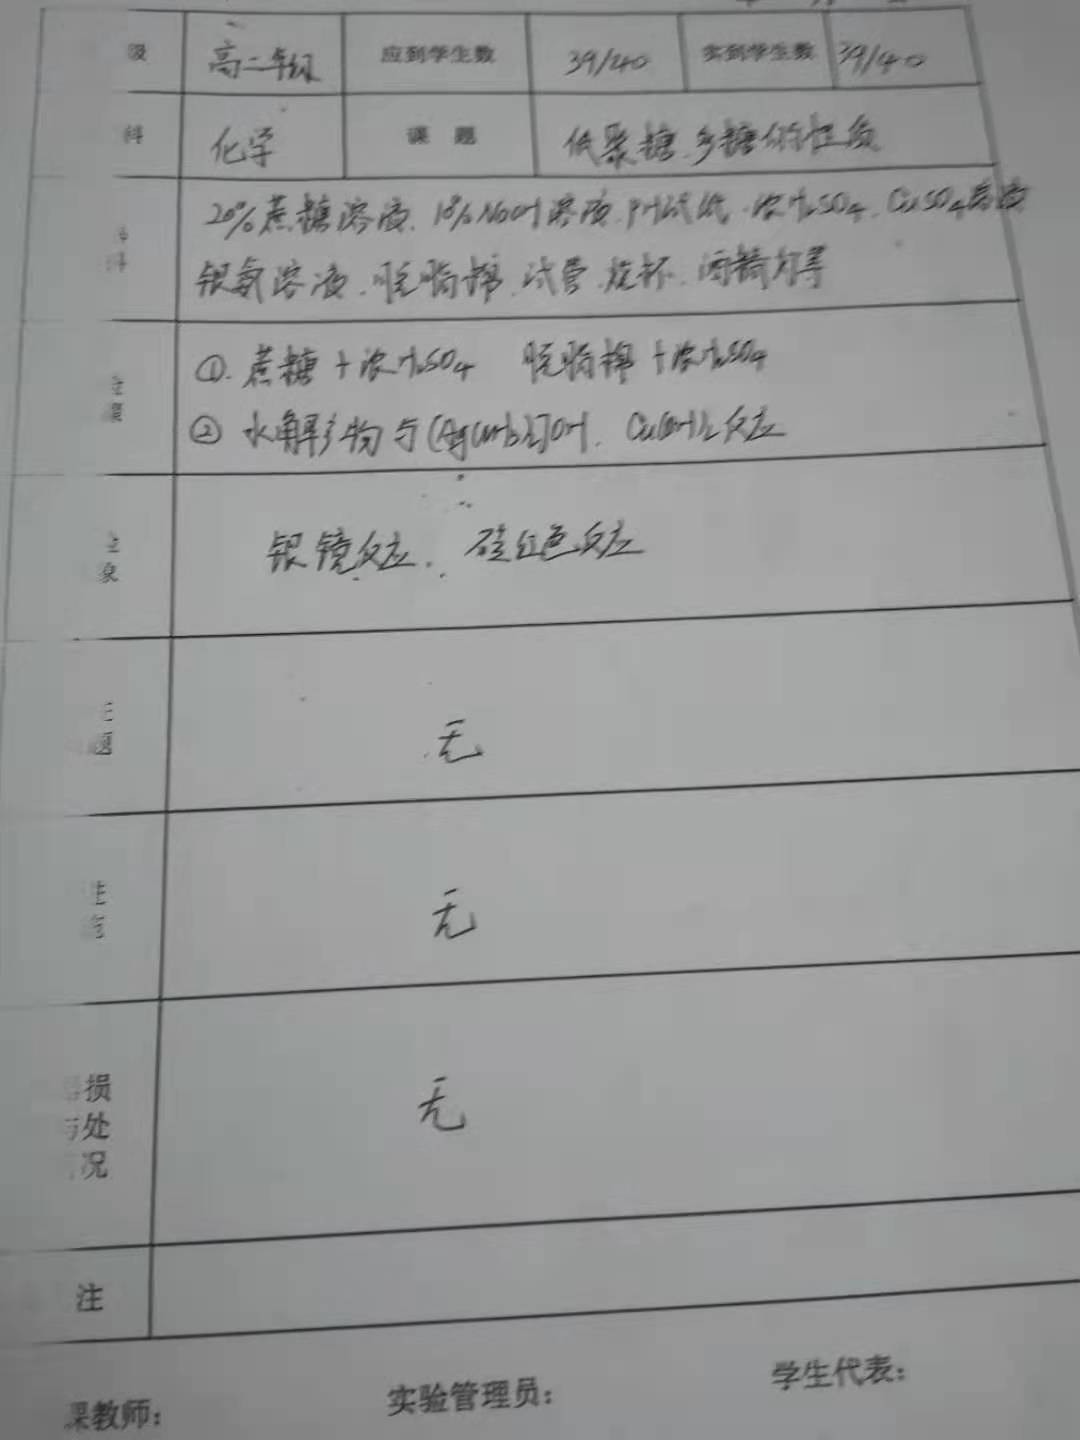 级 高二年级 应到学生数 39/40 实到学生数 39/40
科 化学 课 题 低聚糖、多糖的性质
20%蔗糖溶液、10%NaOH溶液、PH试纸、浓H2SO4、CuSO4溶液
料 银氨溶液、脱脂棉、试管、烧杯、酒精灯等
①.蔗糖+浓H2SO4 脱脂棉+浓H2SO4
② 水解产物与[Ag(NH3)2]OH、Cu(OH)2反应
象 银镜反应、砖红色反应
题 无
无
损
处 无
况
注
课教师: 实验管理员: 学生代表: